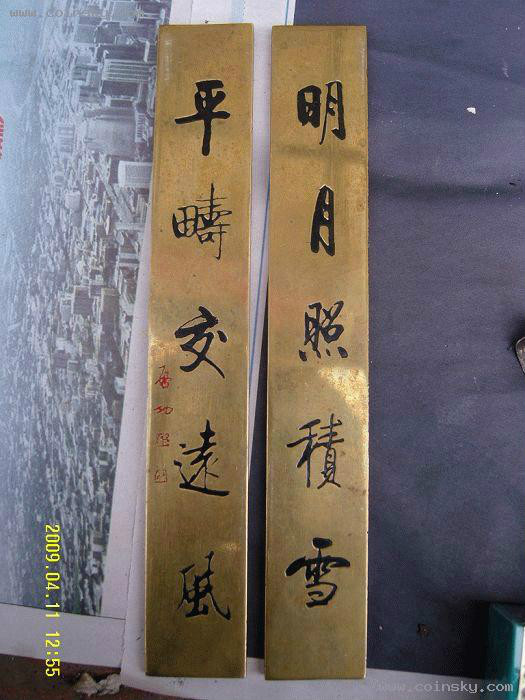 明月照積雪
平疇交遠風
启功
2009.04.11 12:55
www.coinsky.com